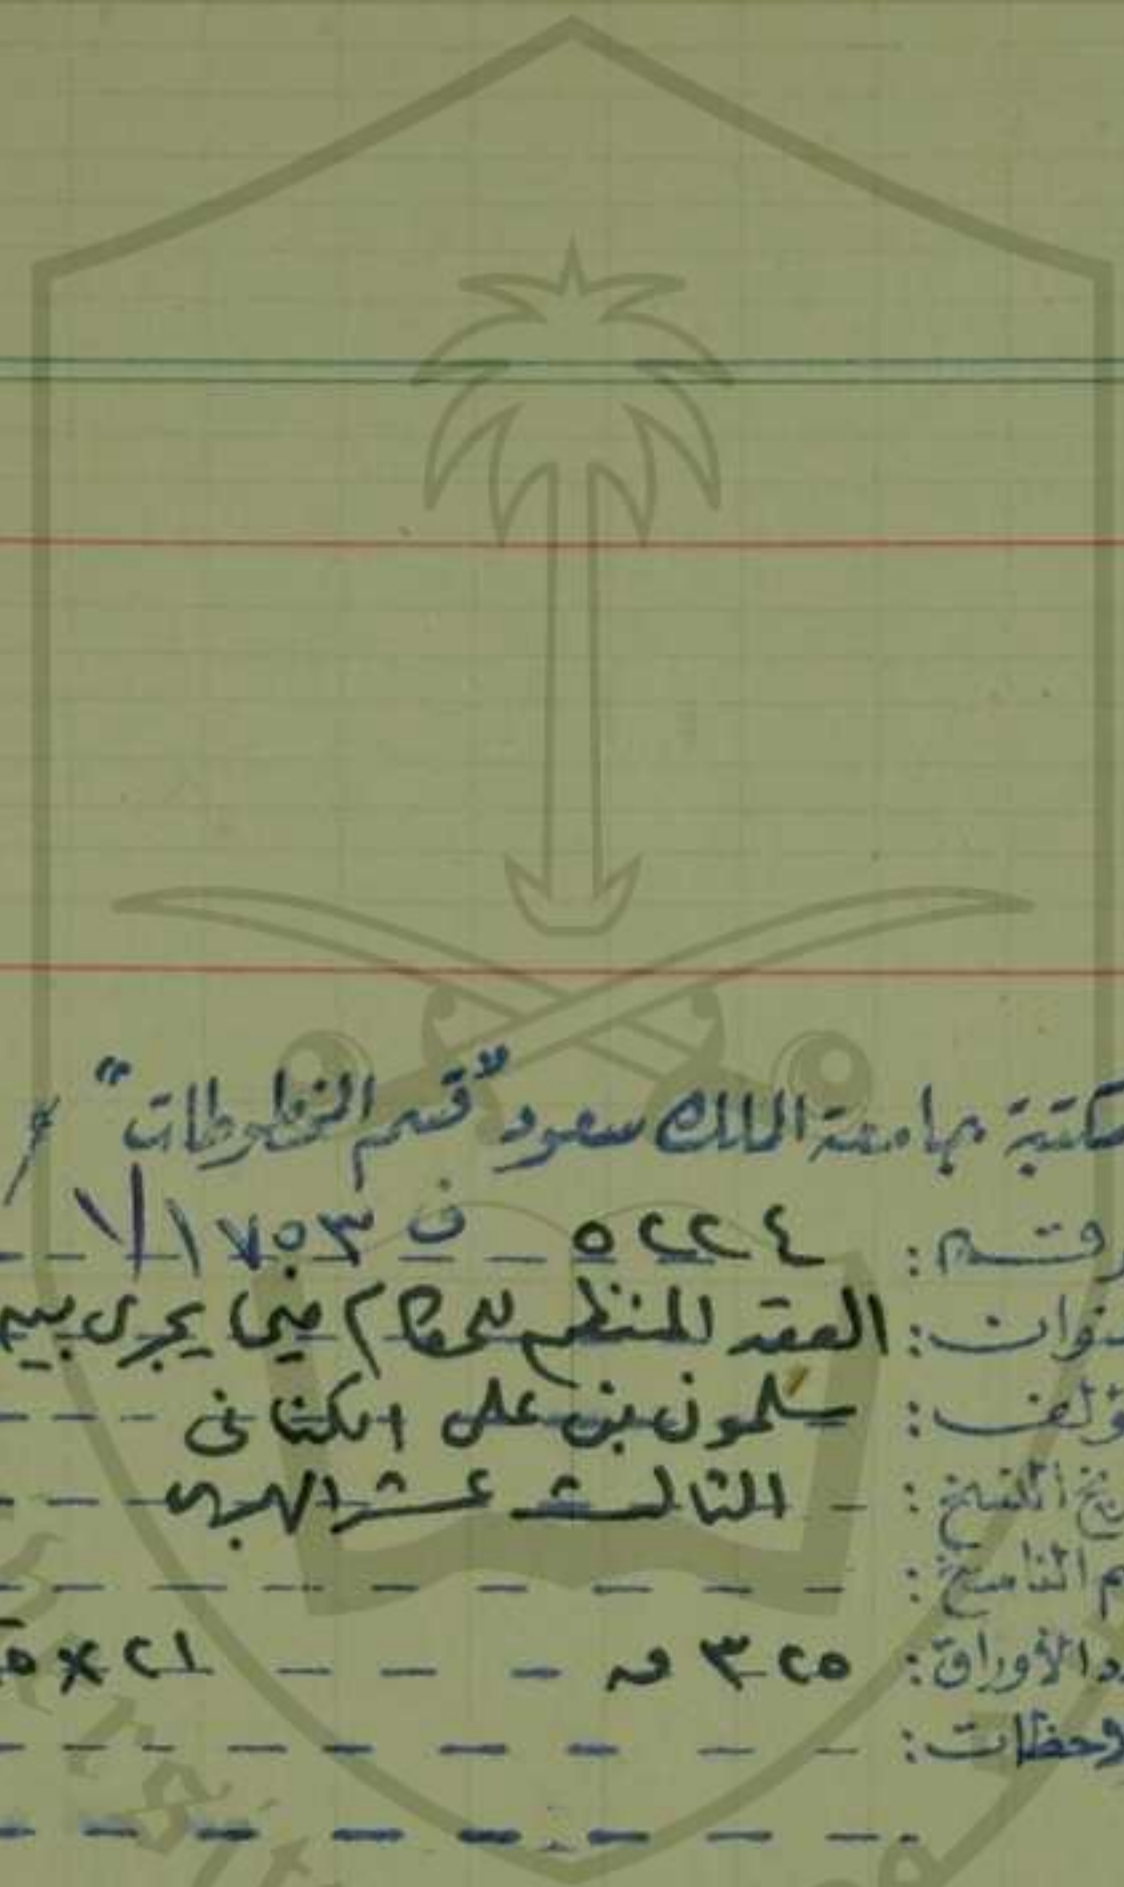 كتبة جامعة الملك سعود "قسم المخطوطات"
رقم: ٥٢٢٤ ف ١٧٥٣/١
نوان: العقد المنظم للحكام فيما يجرى بيـ
ؤلف: سلمون بن على الكنانى
ريخ النسخ: الثالث عشر الهجرى
م الناسخ:
د الأوراق: ٣٢٥ ق ٢١×
وحظات: